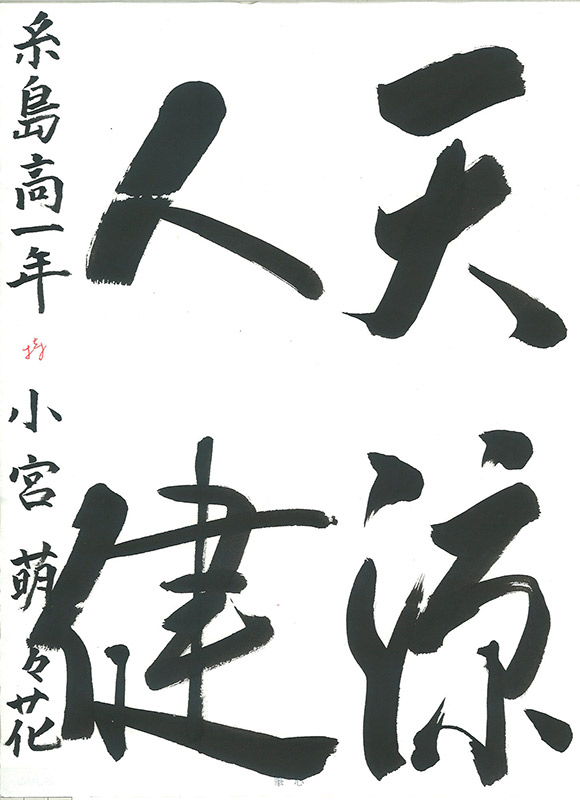 天涼
人健
糸島高一年
特
小宮萌々花
筆心